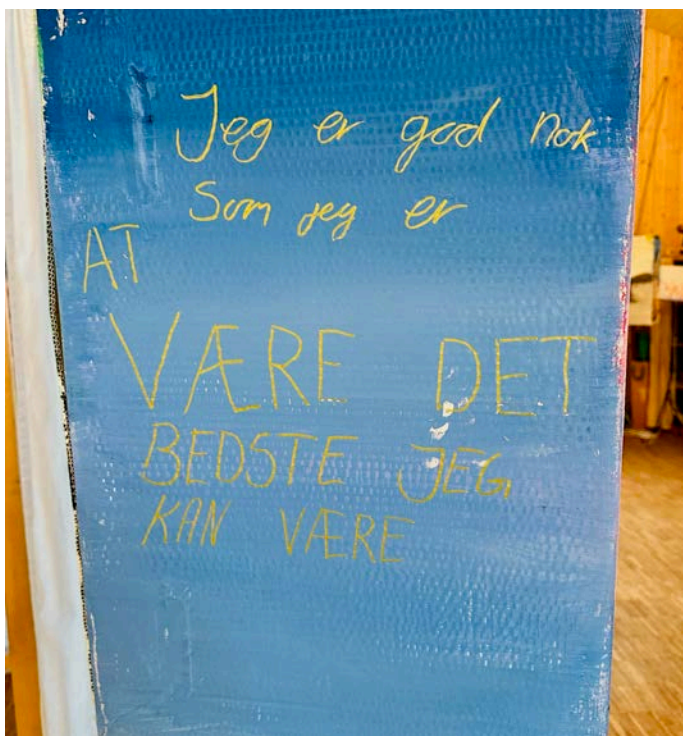 Jeg er god nok
Som jeg er
AT
VÆRE DET
BEDSTE JEG,
KAN VÆRE